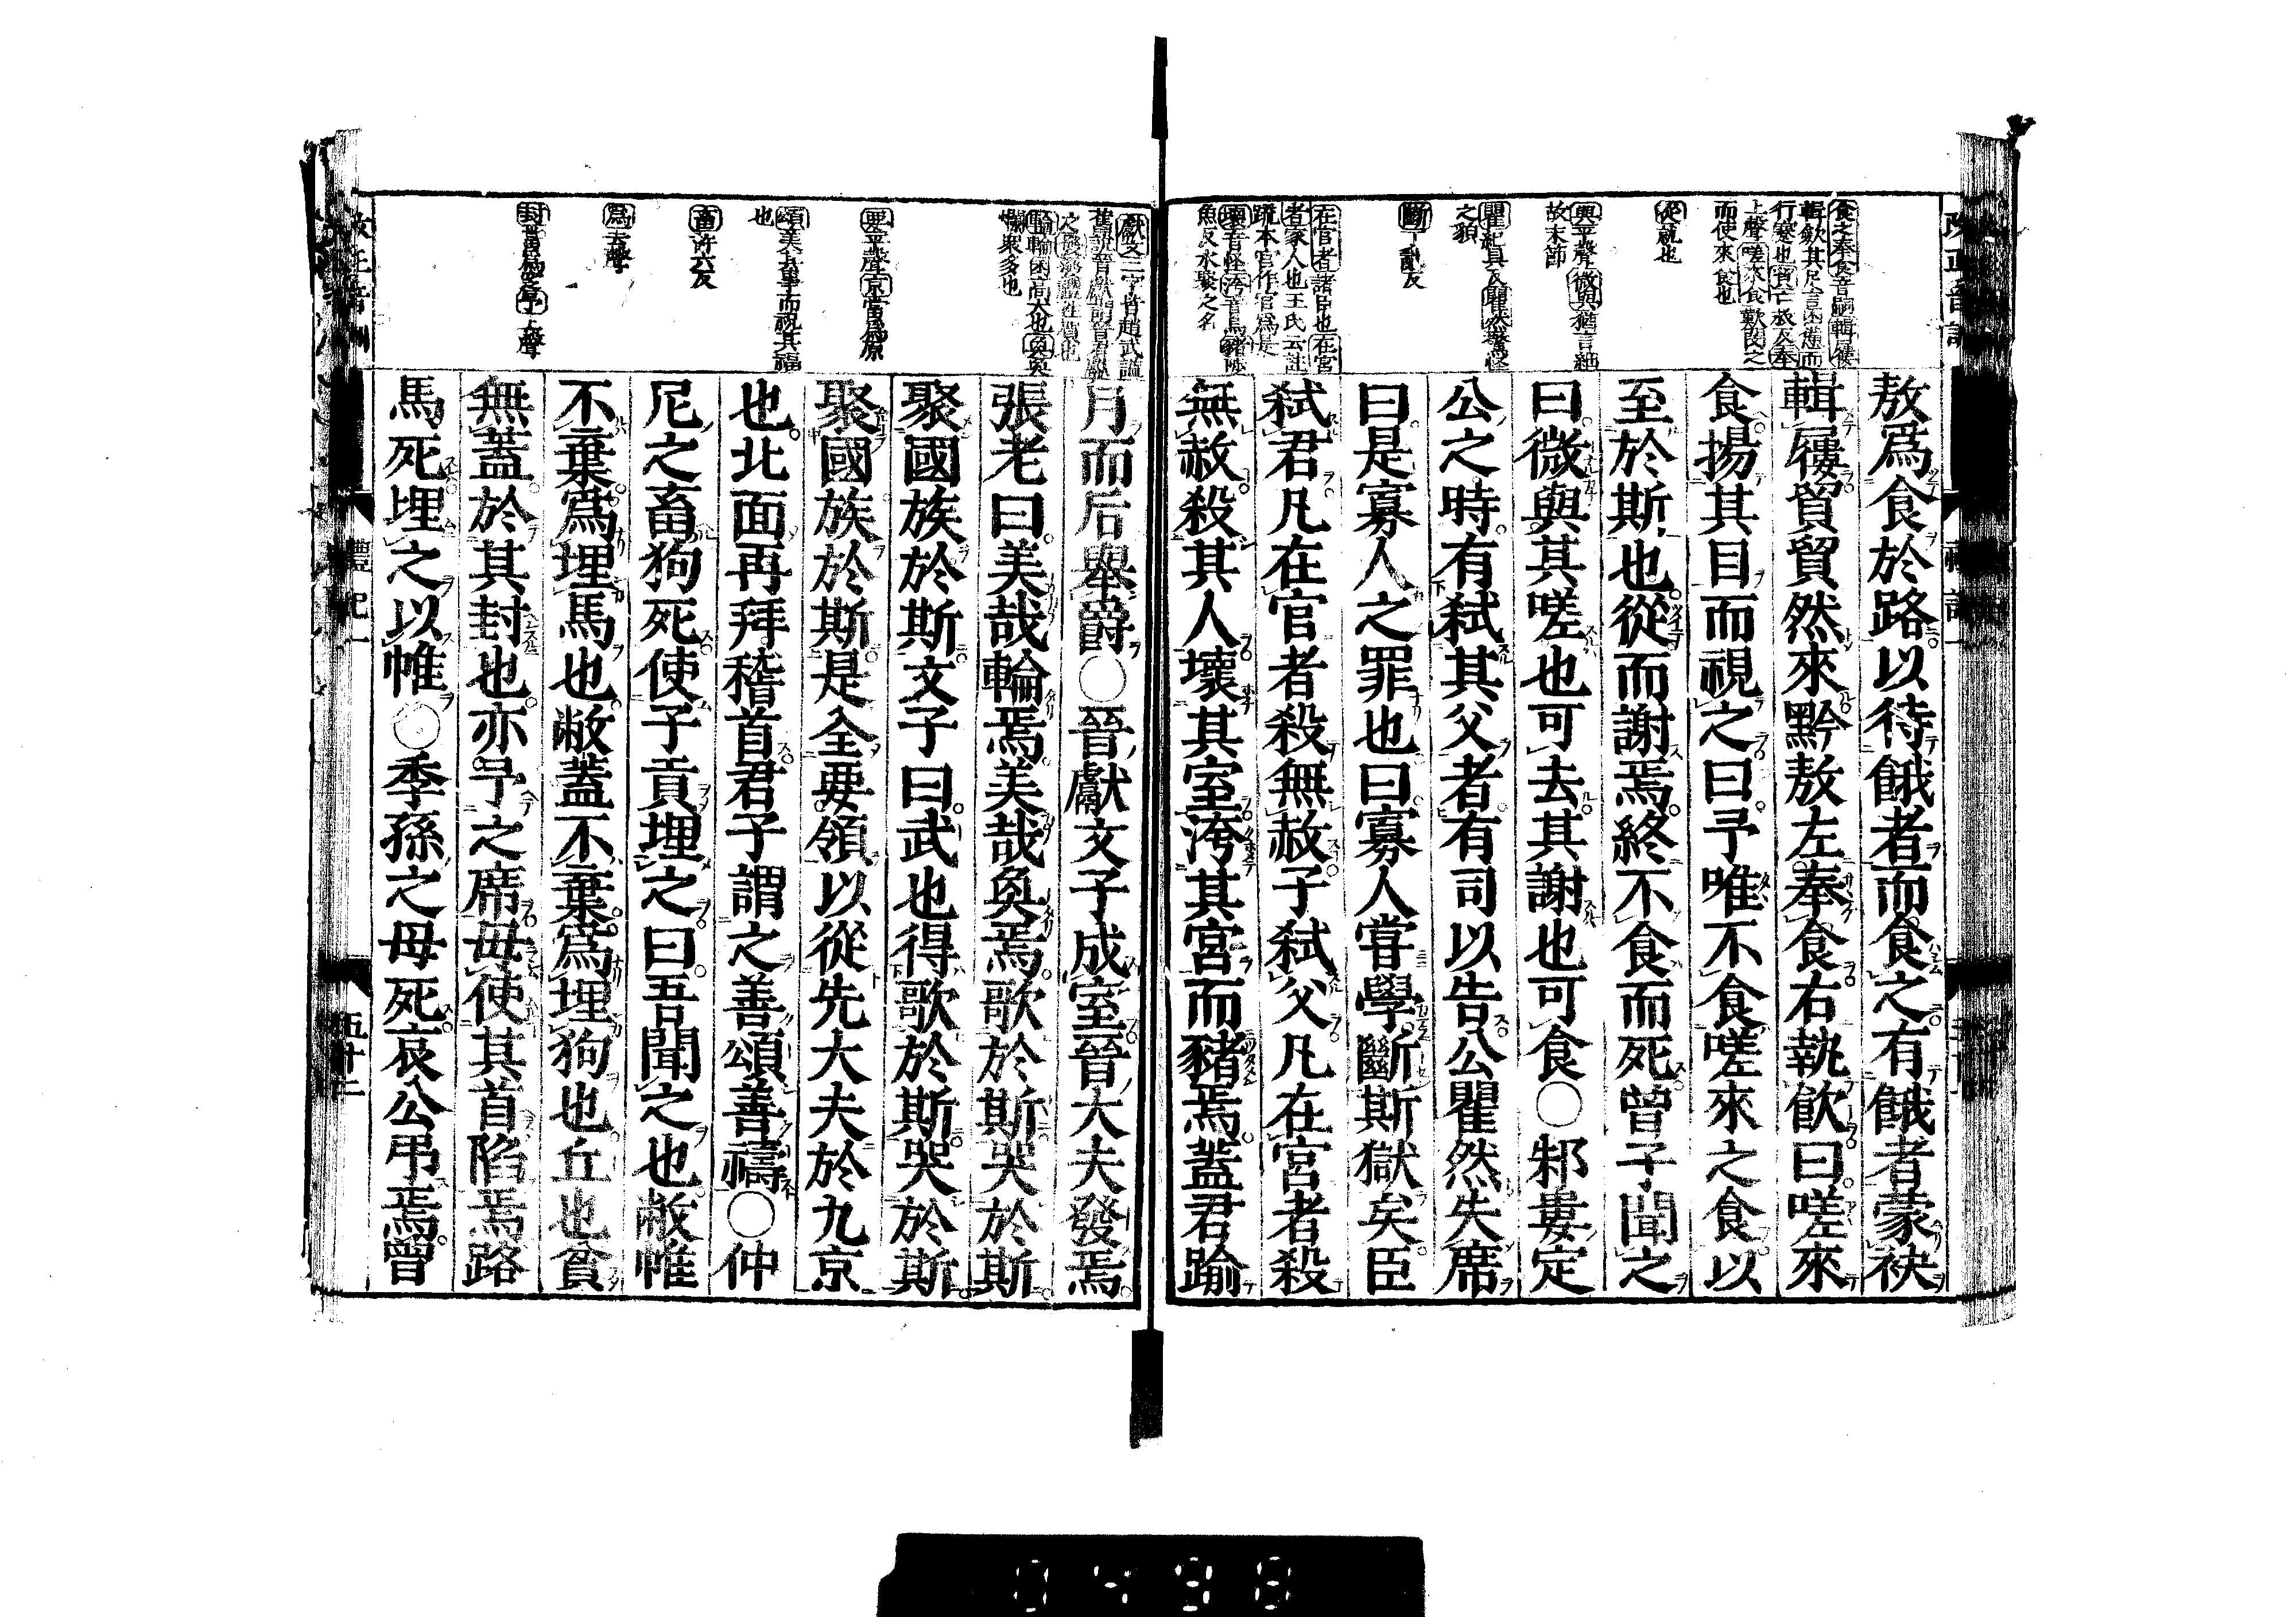 敖爲食於路以待餓者而食之有餓者蒙袂
輯屨貿貿然來黔敖左奉食右執飮曰嗟來
食揚其目而視之曰予唯不食嗟來之食以
至於斯也從而謝焉終不食而死曾子聞之
曰微與其嗟也可去其謝也可食○邾婁定
公之時有弑其父者有司以告公瞿然失席
曰是寡人之罪也曰寡人嘗學斷斯獄矣臣
弑君凡在官者殺無赦子弑父凡在宮者殺
無赦殺其人壞其室洿其宮而豬焉蓋君踰
月而后舉爵○晉獻文子成室晉大夫發焉
張老曰美哉輪焉美哉奐焉歌於斯哭於斯
聚國族於斯文子曰武也得歌於斯哭於斯
聚國族於斯是全要領以從先大夫於九京
也北面再拜稽首君子謂之善頌善禱○仲
尼之畜狗死使子貢埋之曰吾聞之也敝帷
不棄爲埋馬也敝蓋不棄爲埋狗也丘也貧
無蓋於其封也亦予之席毋使其首陷焉路
馬死埋之以帷○季孫之母死哀公弔焉曾
從就也
斷丁亂反
要平聲京當爲原
頌美其事而祝其福
也
畜許六反
爲去聲
封當爲窆予上聲
禮記一
五十二